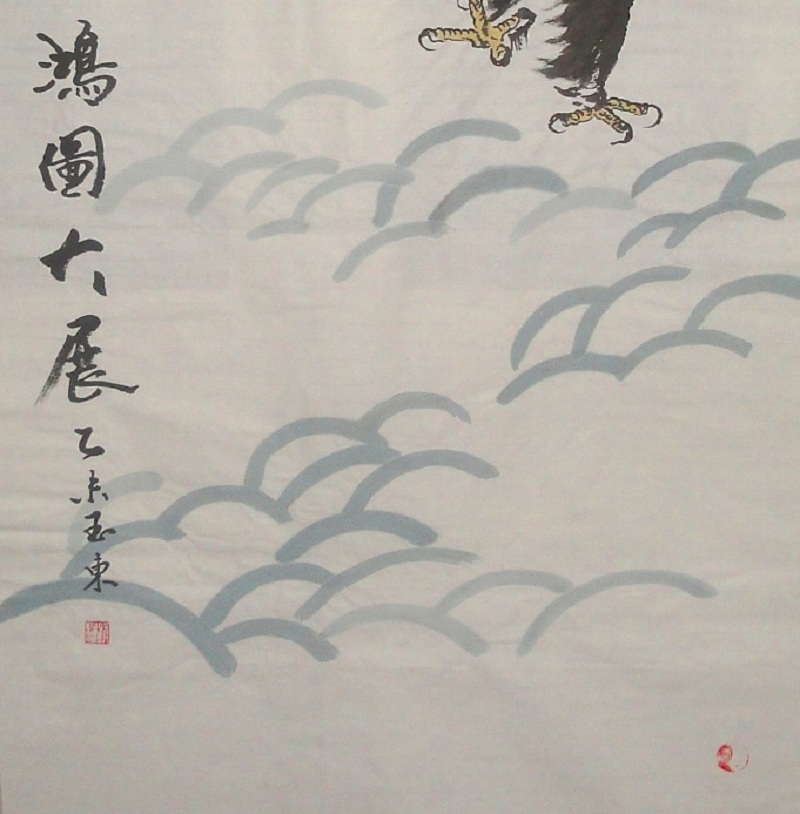 鴻圖大展
乙未玉東